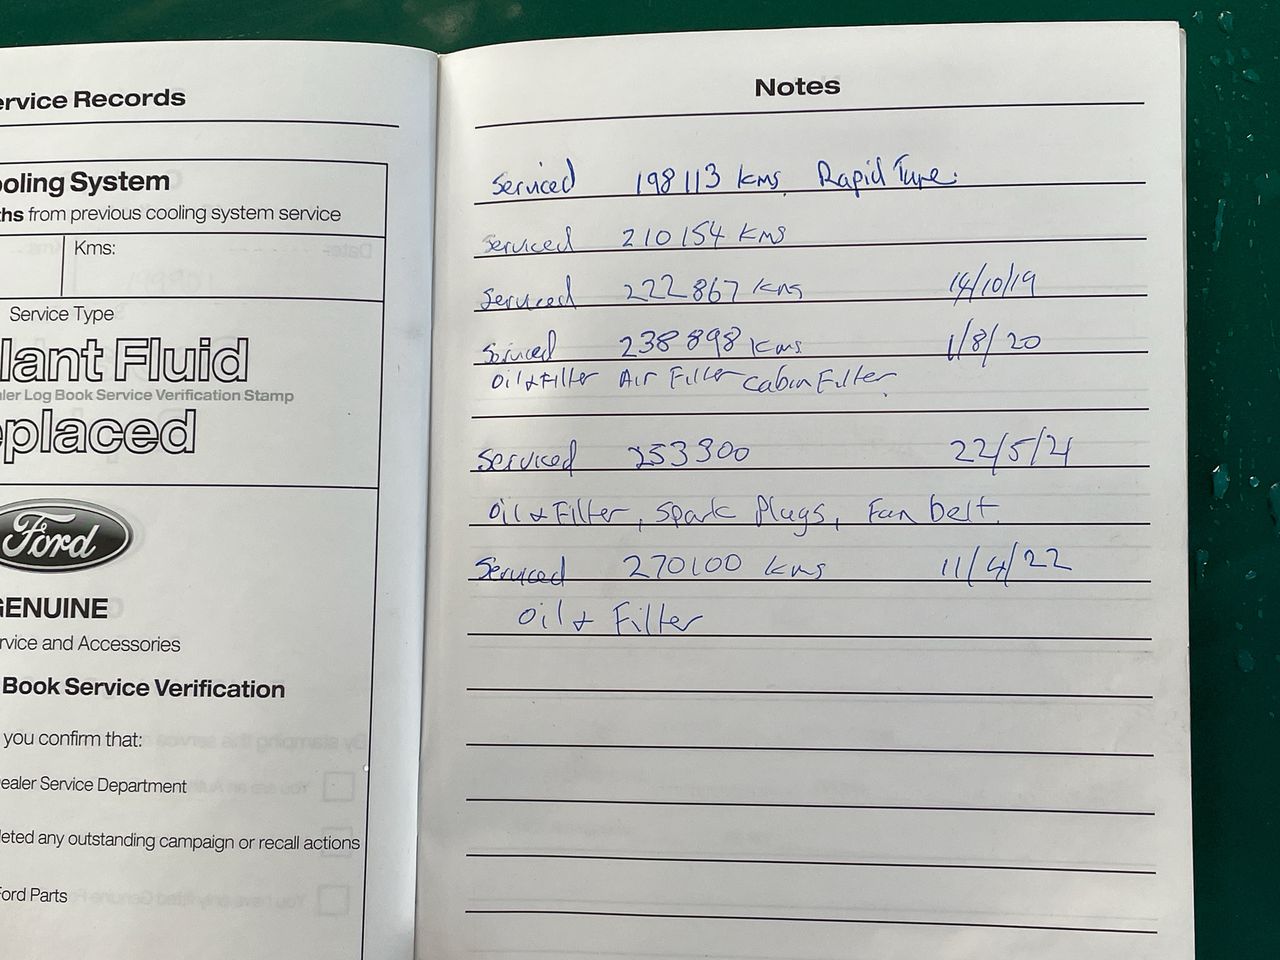 ervice Records
ooling System
ths from previous cooling system service
Kms:
Service Type
lant Fluid
aler Log Book Service Verification Stamp
eplaced
Ford
GENUINE
rvice and Accessories
Book Service Verification
you confirm that:
ealer Service Department
leted any outstanding campaign or recall actions
Ford Parts
Notes
Serviced 198113 kms. Rapid Tune.
Serviced 210154 kms
Serviced 222867 kms 14/10/19
Serviced 238898 kms 1/8/20
Oil & Filter Air Filter Cabin Filter.
Serviced 253300 22/5/21
Oil & Filter, Spark Plugs, Fan belt.
Serviced 270100 kms 11/4/22
Oil & Filter